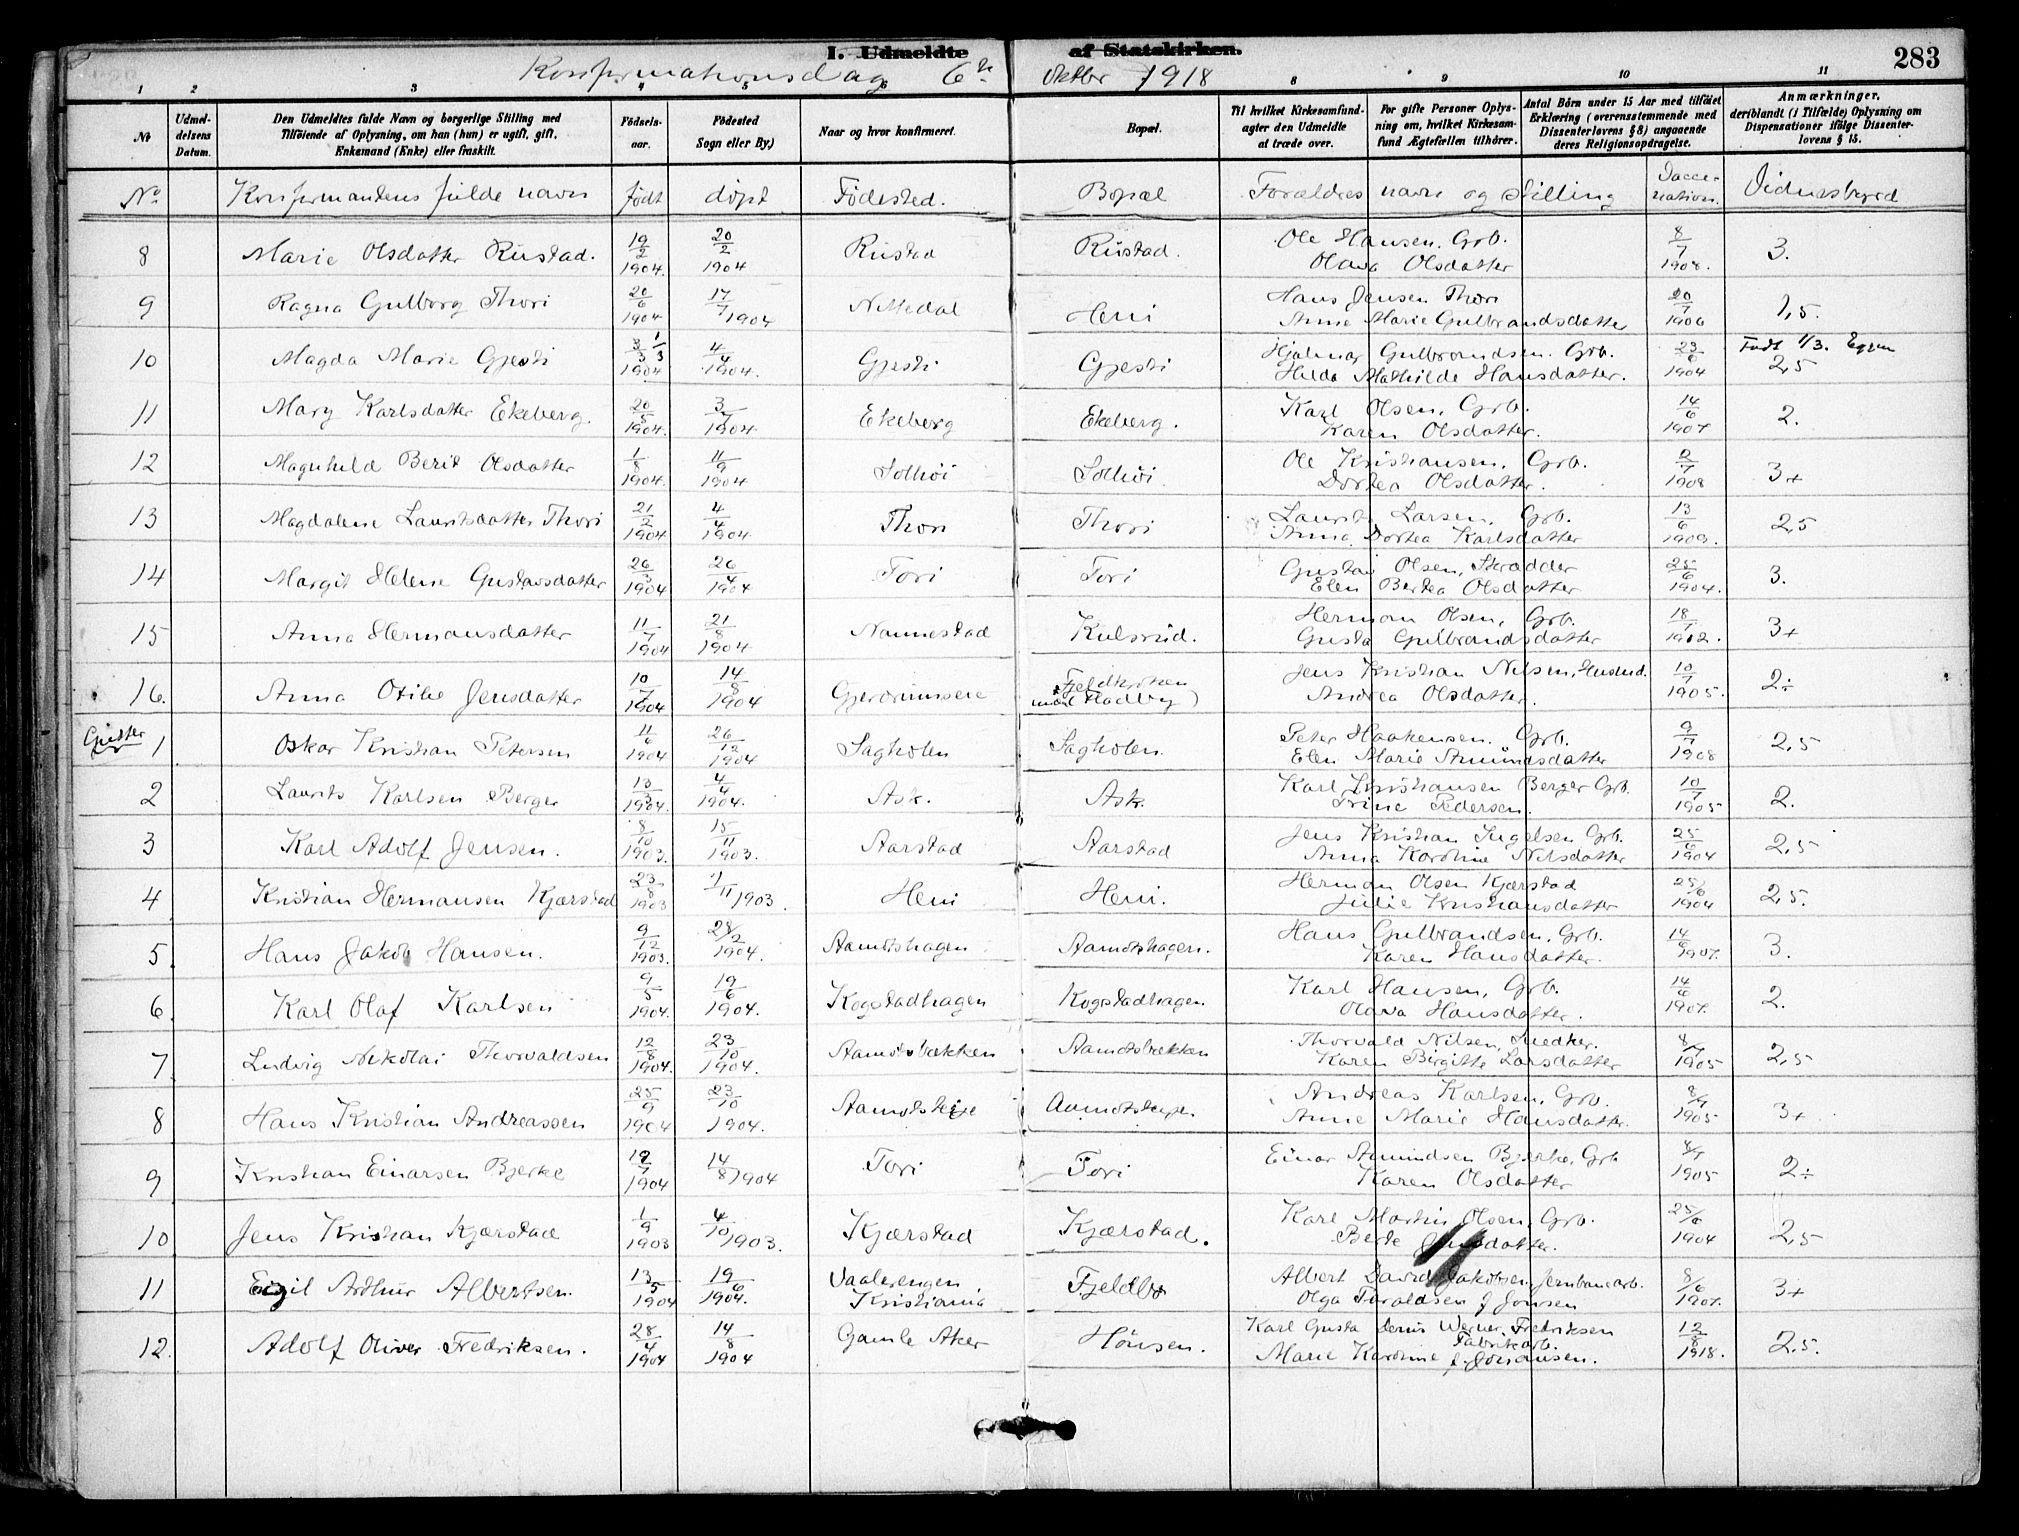 I. Udmeldte af Statskirken.
283
Konfirmationsdag 6te Oktbr 1918
1 2 3 4 5 6 8 9 10 11
No
Udmeldelsens Datum.
Den Udmeldtes fulde Navn og borgerlige Stilling med Tilføiende af Oplysning, om han (hun) er ugift, gift, Enkemand (Enke) eller fraskilt.
Fødselsaar.
Fødested Sogn eller By.)
Naar og hvor konfirmeret.
Bopæl.
Til hvilket Kirkesamfund agter den Udmeldte at træde over.
For gifte Personer Oplysning om, hvilket Kirkesamfund Ægtefællen tilhører.
Antal Børn under 15 Aar med tilføiet Erklæring (overensstemmende med Dissenterlovens § 8) angaaende deres Religionsopdragelse.
Anmærkninger, deriblandt (i Tilfælde) Oplysning om Dispensationer ifølge Dissenterlovens § 15.
No. Konfirmandens fulde navn født døpt Fødested. Bopæl Forældres navn og stilling Vaccination. Vidnesbyrd
8 Marie Olsdatter Rustad. 19/2 1904. 20/2 1904 Rustad Rustad. Ole Hansen. Grb. Olava Olsdatter 8/7 1908. 3.
9 Ragna Gulborg Thori 20/6 1904 17/7 1904 Nittedal Heni Hans Jensen Thori Anne Marie Gulbrandsdatter 20/7 1906 1,5.
10 Magda Marie Gjesti 3/3 1/3 1904 4/4 1904. Gjesti Gjesti Hjalmar Gulbrandsen. Grb. Hilda Mathilde Hansdatter. 23/6 1904 Født 1/3. 2,5
11 Mary Karlsdatter Ekeberg. 20/5 1904. 3/7 1904. Ekeberg Ekeberg. Karl Olsen, Grb. Karen Olsdatter. 14/6 1907 2.
12 Magnhild Berit Olsdatter 1/8 1904. 11/9 1904 Solhöi Solhöi. Ole Kristiansen, Grb. Dortea Olsdatter. 2/7 1908 3+
13 Magdalene Lauritsdatter Thori 21/2 1904 4/4 1904 Thori Thori Laurits Larsen, Grb. Anna Dortea Karlsdatter 13/6 1903. 2,5
14 Margit Helene Gustavsdatter 26/3 1904 26/4 1904 Tori Tori Gustav Olsen, Skrædder Elen Bertea Olsdatter 25/6 1904. 3.
15 Anna Hermansdatter 11/7 1904 21/8 1904 Nannestad Kulsrud. Herman Olsen, Grb. Gusta Gulbrandsdatter 18/7 1912. 3+
16. Anna Otilie Jensdatter 10/7 1904 14/8 1904 Gjerdrumseie Fjeldkroken Jens Kristian Nilsen, Husmd. Andrea Olsdatter. 10/7 1905. 2÷
Gutter 1 Oskar Kristian Petersen 11/6 1904 26/12 1904 Sagholen Sagholen. Peter Haakensen. Grb. Elen Marie Amundsdatter 9/7 1908 2,5
2 Laurits Karlsen Berger 13/3 1904. 4/4 1904. Ask. Ask. Karl Kristiansen Berger Grb. Trine Pedersen 10/7 1905 2.
3 Karl Adolf Jensen. 8/10 1903. 15/11 1903. Aarstad Aarstad Jens Kristian Ingelsen Grb. Anna Karoline Nilsdatter 25/6 1904 2,5
4 Kristian Hermansen Kjærstad 23/8 1903 1/11 1903. Heni Heni. Herman Olsen Kjærstad Julie Kristiansdatter 25/6 1904 2,5.
5. Hans Jakob Hansen. 9/12 1903. 28/2 1904. Aamotshagen Aamotshagen. Hans Gulbrandsen, Grb. Karen Hansdatter. 14/6 1907. 3.
6. Karl Olaf Karlsen 9/5 1904. 19/6 1904. Kogstadhagen Kogstadhagen. Karl Hansen, Grb. Olava Hansdatter. 14/6 1907. 2.
7. Ludvig Nikolai Thorvaldsen 12/8 1904. 23/10 1904. Aamotsbækken Aamotsbækken Thorvald Nilsen, Snedker. Karen Birgitte Larsdatter 8/7 1905 2,5
8 Hans Kristian Andreassen 25/9 1904 23/10 1904. Aamotseie Aamotseie. Andreas Karlsen, Grb. Anne Marie Hansdatter. 8/7 1905 3+
9 Kristian Einarsen Bjerke 12/7 1904 14/8 1904 Tori Tori Einar Amundsen Bjerke, Grb Karen Olsdatter 8/7 1905 2÷
10 Jens Kristian Kjærstad 1/9 1903 4/10 1903. Kjærstad Kjærstad. Karl Martin Olsen, Grb. Berte Jensdatter. 25/6 1904 2,5
11 Eigil Arthur Albertsen. 13/5 1904 19/6 1904. Vaalerengen Kristiania Fjeldbo Albert David Jakobsen, Jernbanearb. Olga Toraldsen f. Jonsen 8/6 1907. 3+
12. Adolf Oliver Fredriksen. 28/4 1904 14/8 1904 Gamle Aker Hönsen. Karl Gusta Denis Werner Fredriksen Fabrikarb. Marie Karoline f. Johansen. 12/8 1918. 2,5.